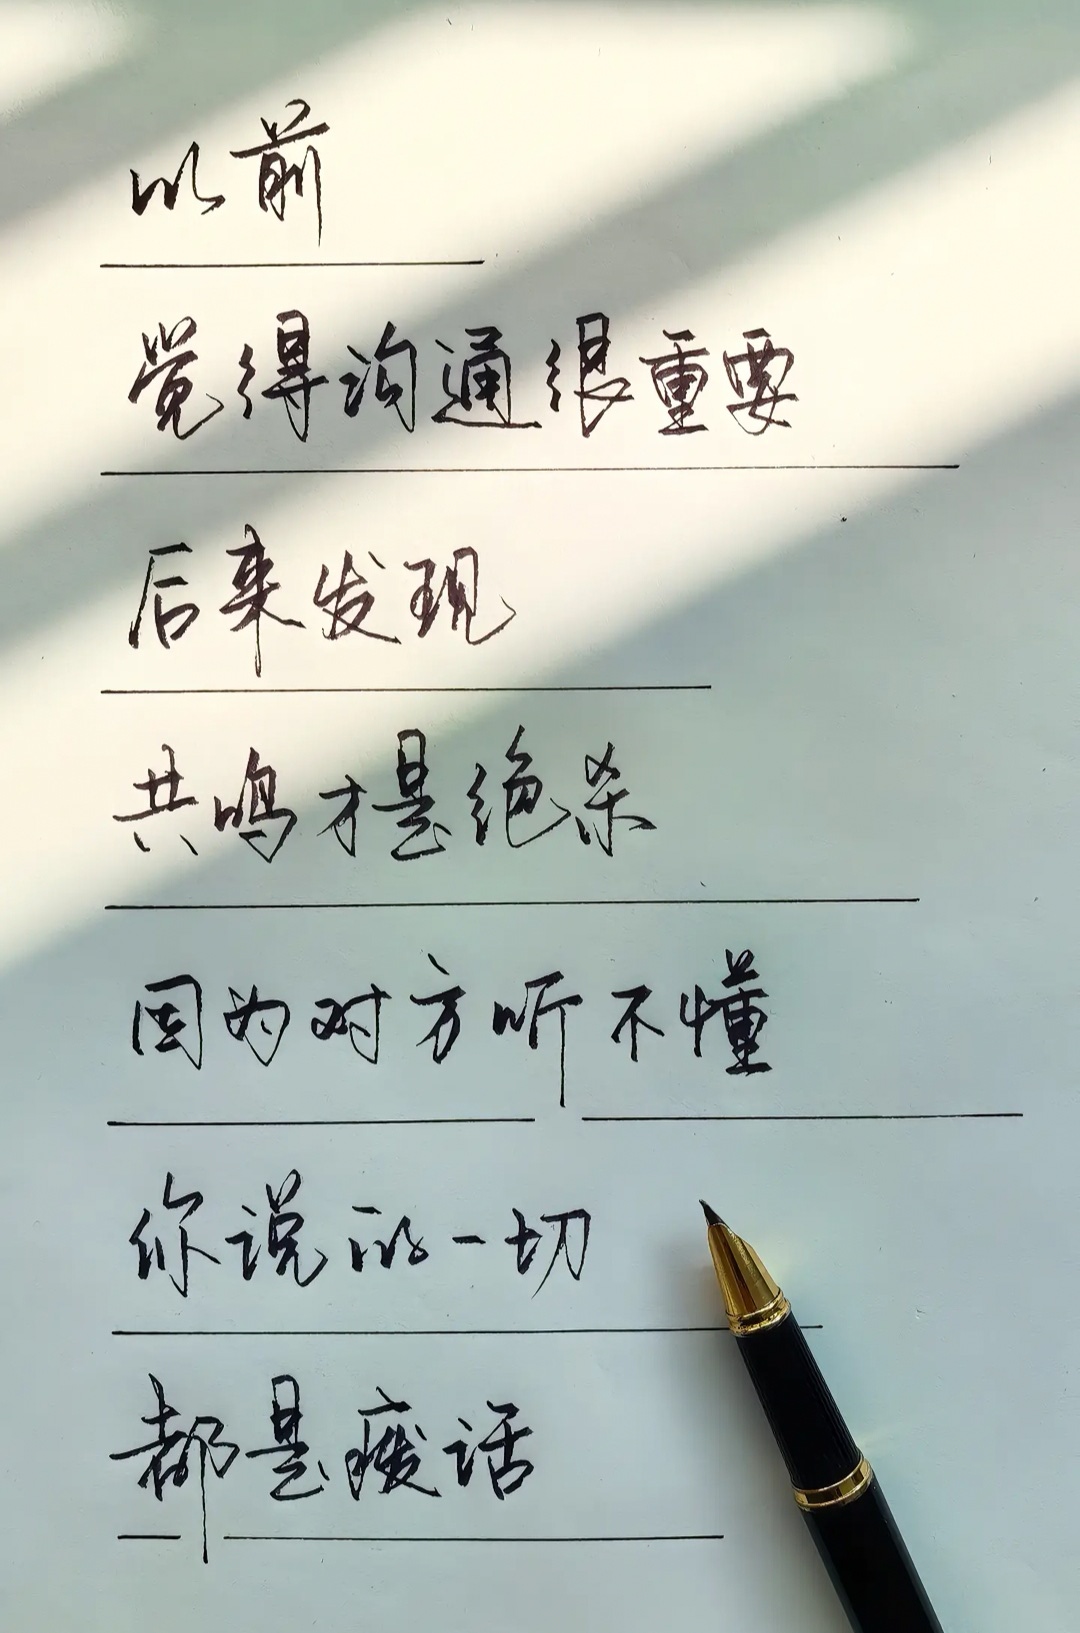 以前
觉得沟通很重要
后来发现
共鸣才是绝杀
因为对方听不懂
你说的一切
都是废话